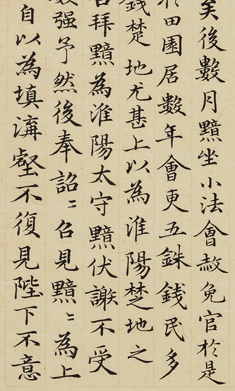 矣後數月黯坐小法會赦免官於是
田園居數年會更五銖錢民多
錢楚地尤甚上以為淮陽楚地之
召拜黯為淮陽太守黯伏謝不受
數強予然後奉詔〻召見黯〻為上
自以為填溝壑不復見陛下不意